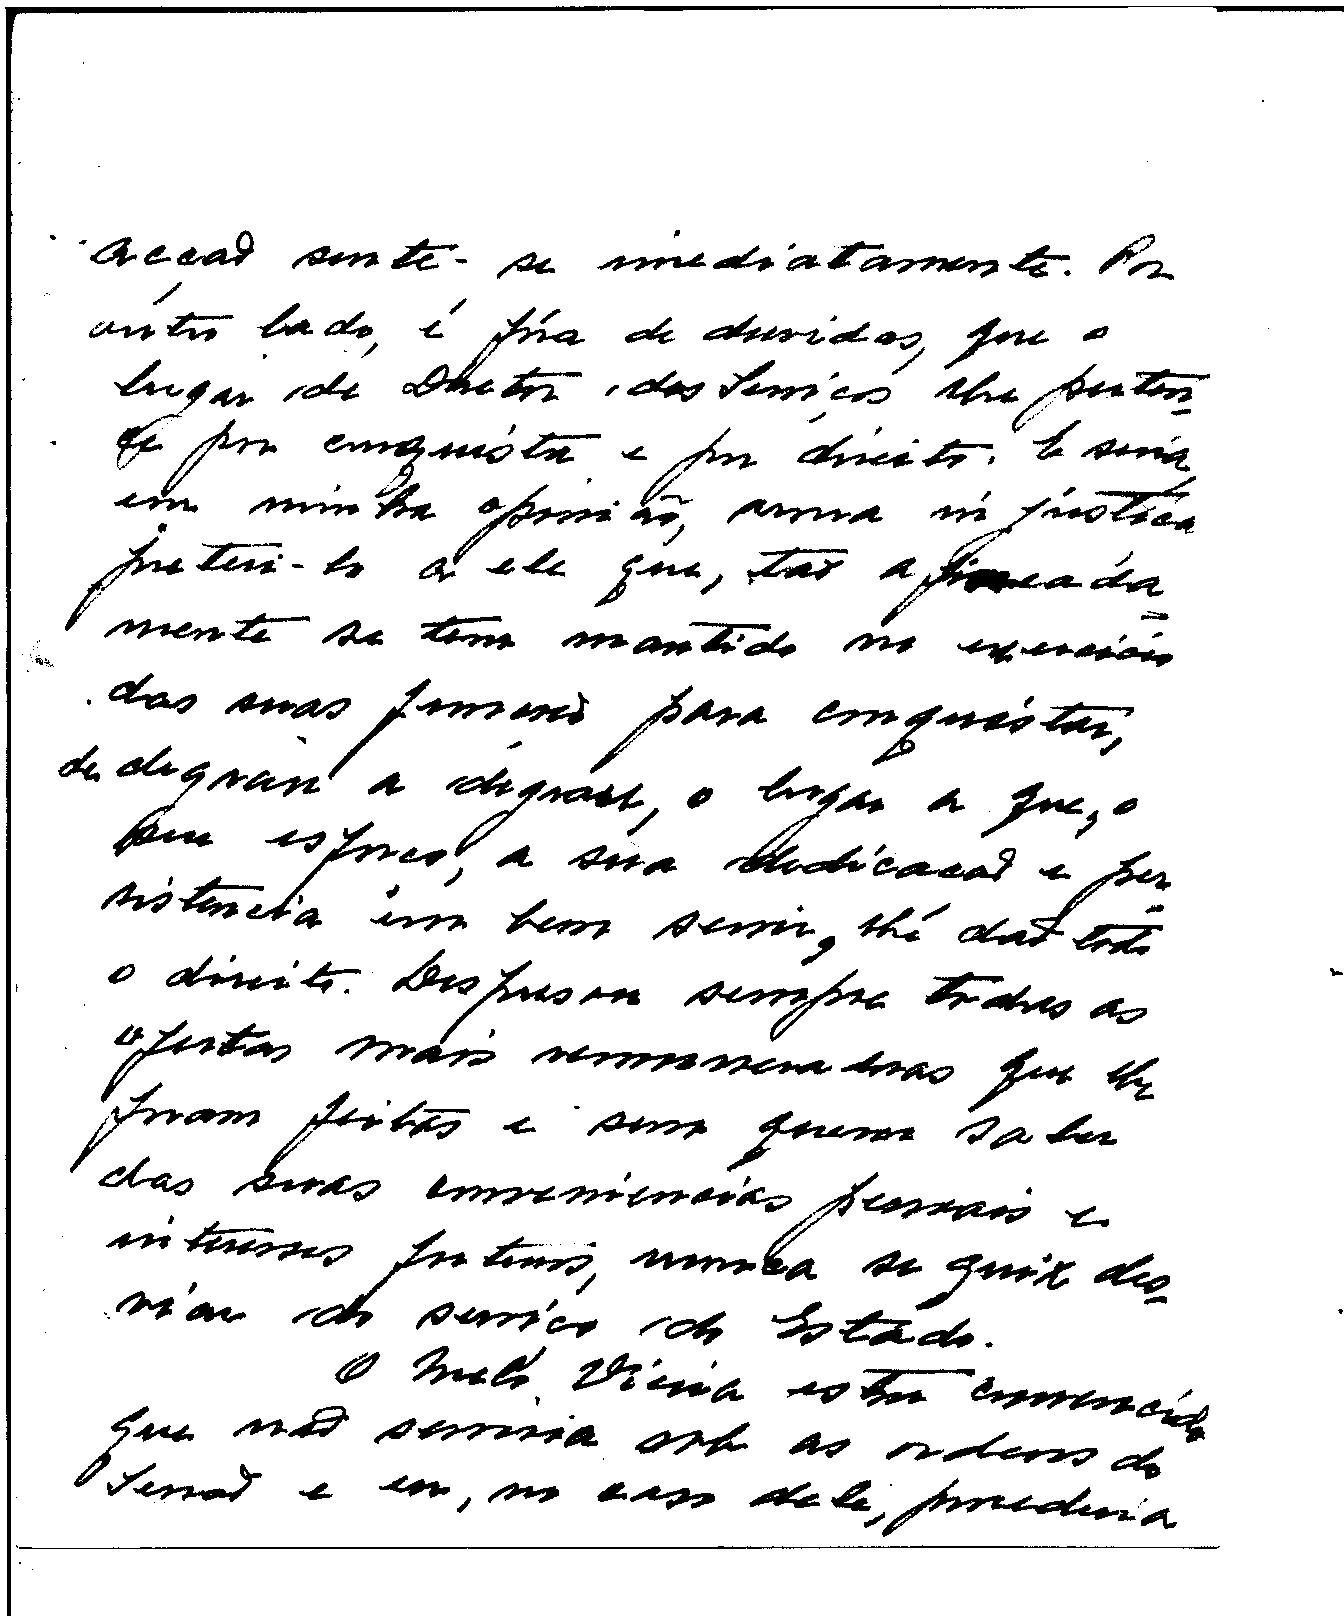 acção sente-se imediatamente. Por
outro lado, é fóra de duvidas, que o
lugar de Director dos Serviços lhe perten-
ce por conquista e por direito. E seria,
em minha opinião, uma injustiça
preteri-lo a ele que, tão
mente se tem mantido no exercicio
das suas funções para conquistar,
de degrau a degrau, o lugar a que, o
seu esforço, a sua dedicação e per-
sistencia em bem servir, lhe dão todo
o direito. Despresou sempre todas as
ofertas mais remuneradoras que lhe
foram feitas e sem querer saber
das suas conveniencias pessoais e
interesses futuros, nunca se quiz des-
viar do serviço do Estado.
O Melo Vieira está convencido
que não serviria sob as ordens do
Serrão e eu, no caso dele, procederia